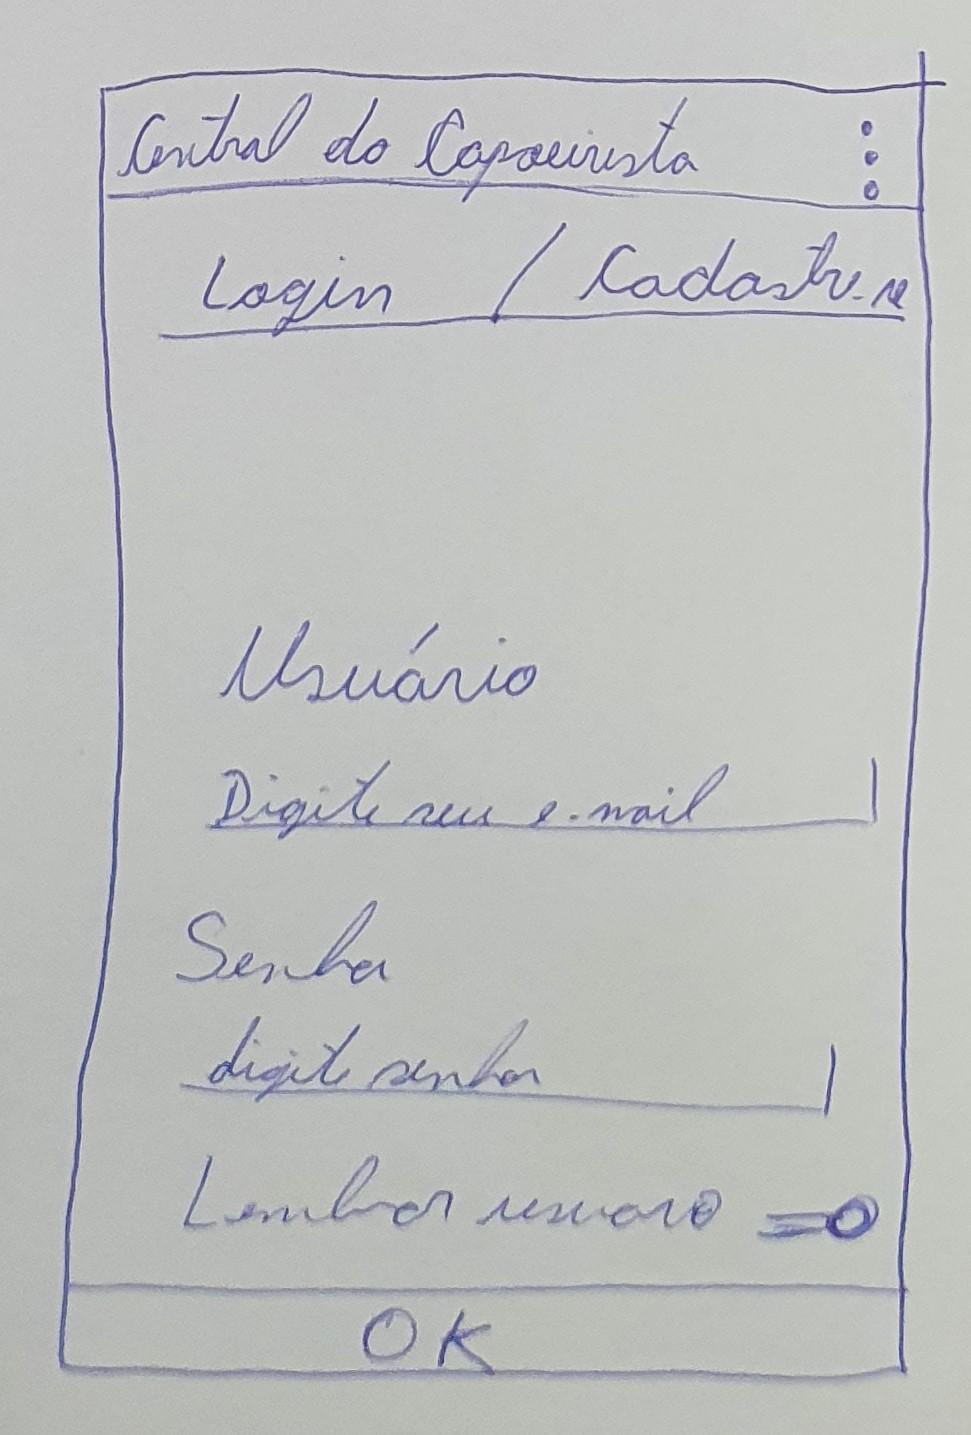 Central do Capoeirista
Login / Cadastre-se
Usuário
Digite seu e-mail
Senha
digite senha
Lembrar usuaro
OK